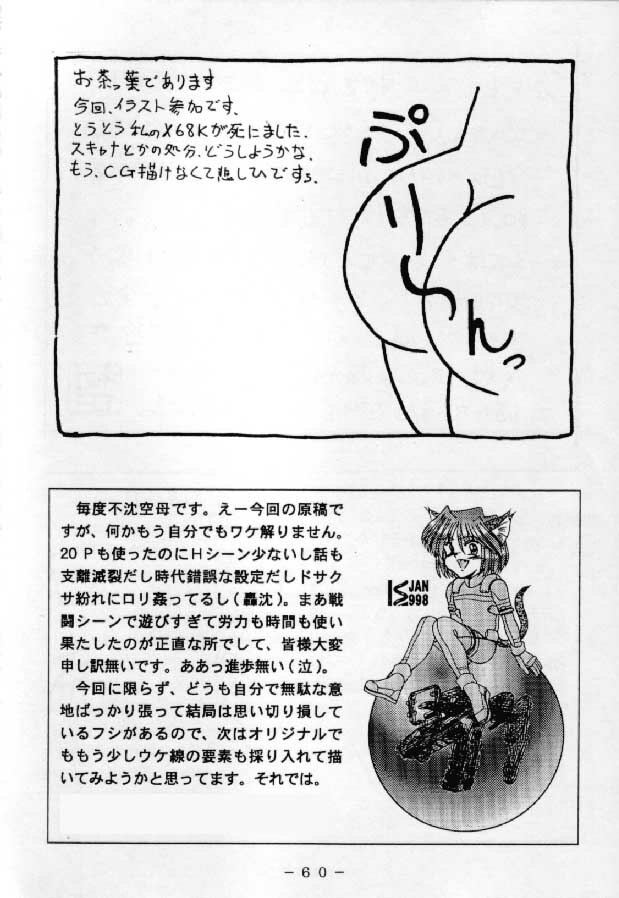 お茶っ葉であります
今回、イラスト参加です、
とうとう私のX68Kが死にました、
スキャナとかの処分、どうしようかな、
もう、CG描けなくて悲しひですっ、
ぷりーんっ
毎度不沈空母です。えー今回の原稿で
すが、何かもう自分でもワケ解りません。
20Pも使ったのにHシーン少ないし話も
支離滅裂だし時代錯誤な設定だしドサク
サ紛れにロリ姦ってるし(轟沈)。まあ戦
闘シーンで遊びすぎて労力も時間も使い
果たしたのが正直な所でして、皆様大変
申し訳無いです。ああっ進歩無い(泣)。
今回に限らず、どうも自分で無駄な意
地ばっかり張って結局は思い切り損して
いるフシがあるので、次はオリジナルで
ももう少しウケ線の要素も採り入れて描
いてみようかと思ってます。それでは。
JAN
1998
-60-